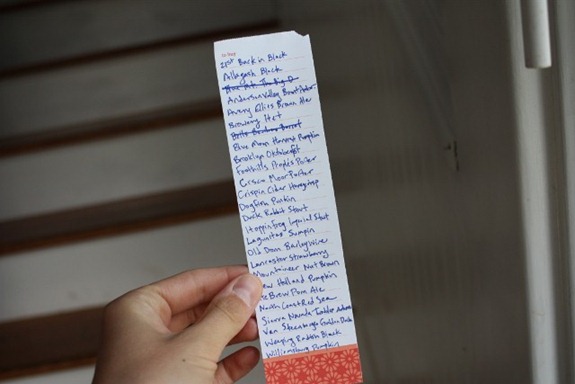 to buy
21st Back in Black
Allagash Black
Anderson Valley Bourbon
Avery Ellies Brown Ale
Breckenridge
Blue Moon Harvest Pumpkin
Brooklyn Oktoberfest
Foothills People's Porter
Cisco Moor Porter
Crispin Cider Honeycrisp
Dogfish Punkin
Duck Rabbit Stout
Hoppin Frog Imperial Stout
Lagunitas Sumpin
Old Dom BarleyWine
Lancaster Strawberry
Mountaineer Nut Brown
New Holland Pumpkin
Brew Pom Ale
North Coast Red Sea
Sierra Nevada Tumbler
Van Steenberge Golden
Weeping Radish Black
Williamsburg Pumpkin